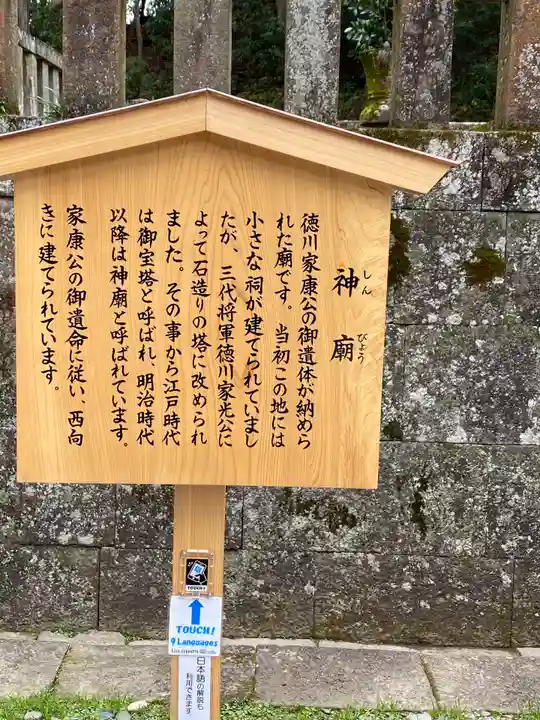 神廟
しんびょう
徳川家康公の御遺体が納めら
れた廟です。当初この地には
小さな祠が建てられていまし
たが、三代将軍徳川家光公に
よって石造りの塔に改められ
ました。その事から江戸時代
は御宝塔と呼ばれ、明治時代
以降は神廟と呼ばれています。
家康公の御遺命に従い、西向
きに建てられています。
TOUCH!
TOUCH!
9 Languages
日本語の解説も
利用できます